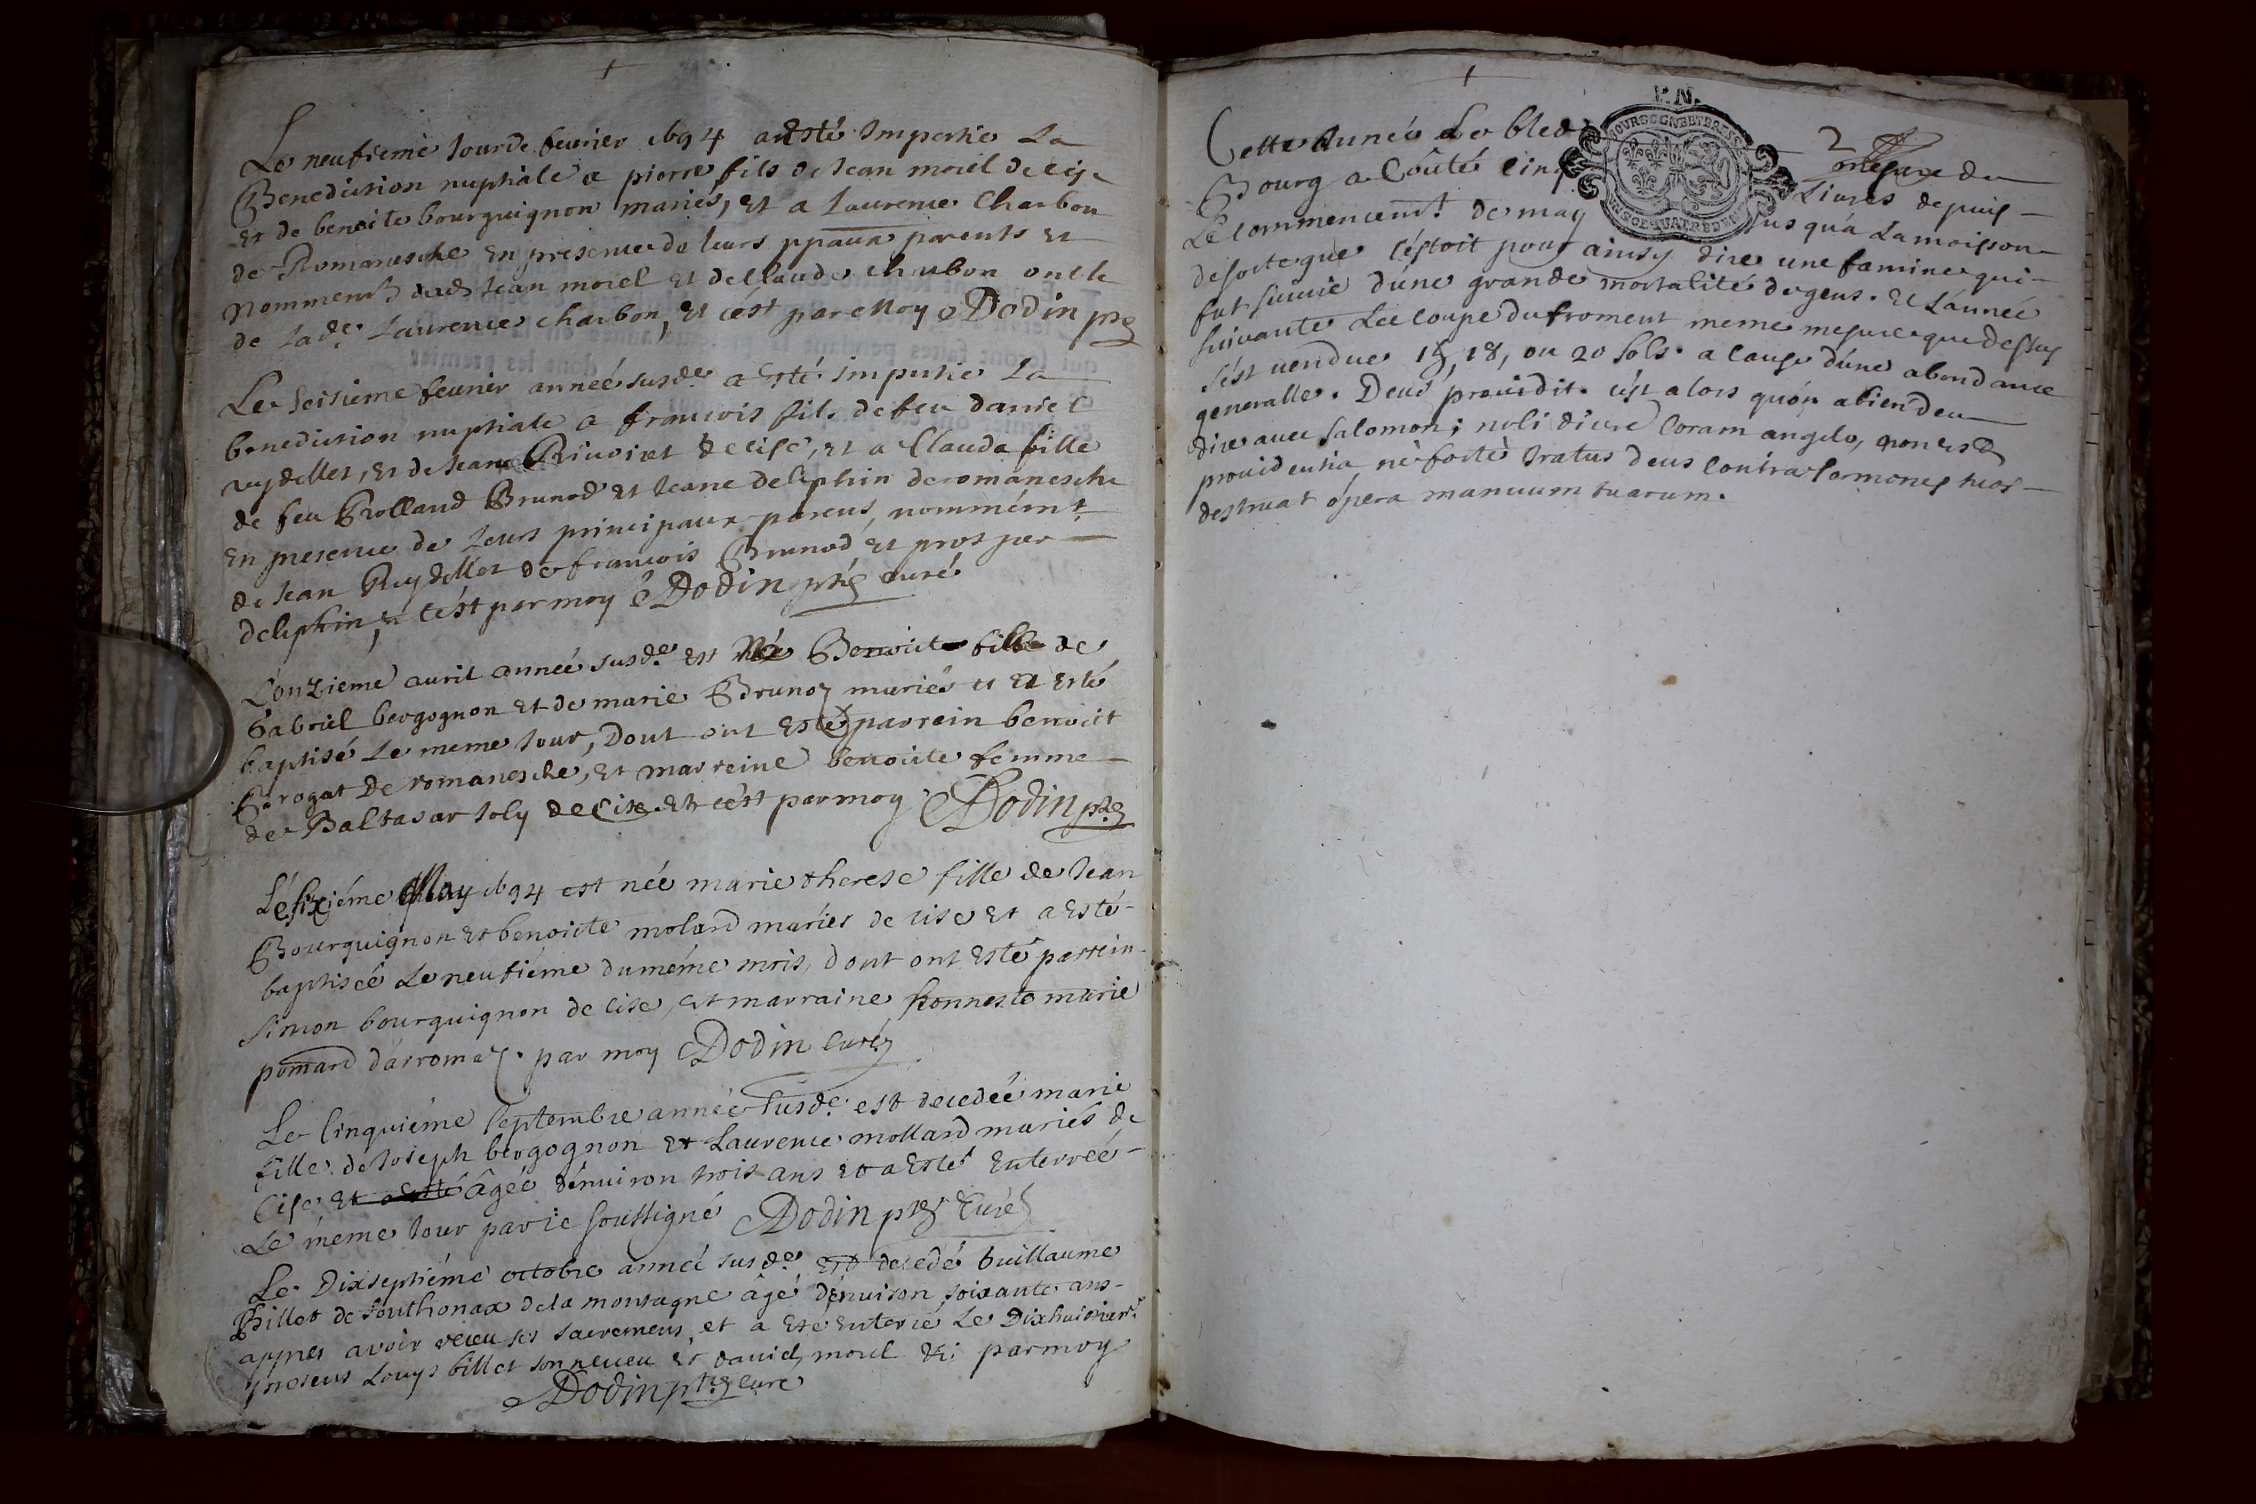 Le neufieme Jour de fevrier 1694 a Esté Impertie La
Benediction nuptiale a pierre fils de Jean morel de cise
et de benoite bourguignon mariés, et a Laurence Charbon
de Romanesche En presence de leurs ppaux parents et
nommemt Jean morel et de Claude charbon oncle
de Lade. Laurence charbon, et cést par Moy Dodin ptre
Le seisieme fevrier année susde a Esté Impertie La
benediction nuptiale a francois fils de feu daniel
reydellet, et de Jeane de cise, et a Claude fille
de feu Rolland Brunod et Jeane deliphin de romanesche
En presence de leurs principaux parens, nommémt
de Jean Reydellet de francois Brunod et prosper
deliphin, et cést par moy Dodin ptre curé
L'onzieme avril année susde Est Née Benoite fille de
Gabriel bergognon et de marie Brunoz mariés et Et Esté
baptisé Le meme Jour, Dont ont Esté parrein benoict
de romanesche, et marreine benoite femme
de Baltasar Joly de Cise Et cést par moy Dodin ptre
Le sixiéme May 1694 est née marie therese fille de Jean
Bourguignon et benoicte molard mariés de cise et a Esté
baptisée Le neufiéme du méme mois, dont ont Esté parrein
Simon bourguignon de cise, et marraine honneste marie
pomard d'arromas. par moy Dodin Curé
Le Cinquiéme Septembre année susde. est decedée marie
fille de Joseph bergognon et Laurence mollard mariés de
Cise et a Esté âgée d'environ trois ans et a Esté Enterrée
Le méme Jour par ie soussigné Dodin ptre Curé
Le Dixseptiéme octobre année susde Est decedé Guillaume
Billet de Southonax de la montagne âgé d'environ soixante ans
appres avoir receu ses sacremens, et a Eté Enterré Le Dixhuictiéme
presens Louys billet son neveu et david morel par moy
Dodin ptre curé
2
P. N.
Cette Année Le bled mesure de
Bourg a Couté Cinq Livres depuis
Le commencemt de may jusqu'a La moisson
de sorte que C'éstoit pour ainsy dire une famine qui
fut suivie d'une grande mortalité de gens. Et L'année
suivante La coupe du froment meme mesure que dessus
s'ést vendue 15, 18, ou 20 sols. a cause d'une abondance
generalle. Deus providit. c'ést alors qu'ón a bien deu
dire avec Salomon; noli dicere Coram angelo, non est
providentia, nè fortè Iratus Deus Contra sermones tuos
destruat ópera manuum tuarum.